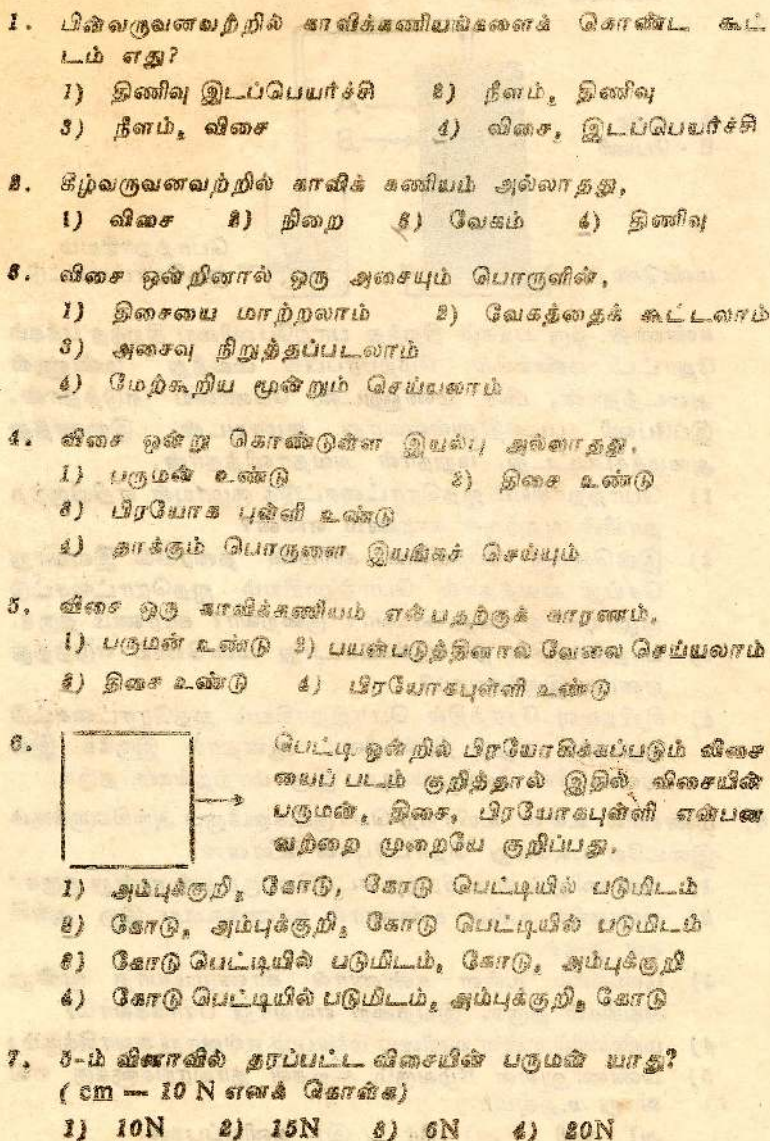 1. பின்வருவனவற்றில் காவிக்கணியங்களைக் கொண்ட கூட்
டம் எது?
1) திணிவு இடப்பெயர்ச்சி 2) நீளம், திணிவு
3) நீளம், விசை 4) விசை, இடப்பெயர்ச்சி
2. கீழ்வருவனவற்றில் காவிக் கணியம் அல்லாதது,
1) விசை 2) நிறை 3) வேகம் 4) திணிவு
3. விசை ஒன்றினால் ஒரு அசையும் பொருளின்,
1) திசையை மாற்றலாம் 2) வேகத்தைக் கூட்டலாம்
3) அசைவு நிறுத்தப்படலாம்
4) மேற்கூறிய மூன்றும் செய்யலாம்
4. விசை ஒன்று கொண்டுள்ள இயல்பு அல்லாதது,
1) பருமன் உண்டு 2) திசை உண்டு
3) பிரயோக புள்ளி உண்டு
4) தாக்கும் பொருளை இயங்கச் செய்யும்
5. விசை ஒரு காவிக்கணியம் என்பதற்குக் காரணம்,
1) பருமன் உண்டு 2) பயன்படுத்தினால் வேலை செய்யலாம்
3) திசை உண்டு 4) பிரயோகபுள்ளி உண்டு
6. பெட்டி ஒன்றில் பிரயோகிக்கப்படும் விசை
யைப் படம் குறித்தால் இதில் விசையின்
பருமன், திசை, பிரயோகபுள்ளி என்பன
வற்றை முறையே குறிப்பது,
1) அம்புக்குறி, கோடு, கோடு பெட்டியில் படுமிடம்
2) கோடு, அம்புக்குறி, கோடு பெட்டியில் படுமிடம்
3) கோடு பெட்டியில் படுமிடம், கோடு, அம்புக்குறி
4) கோடு பெட்டியில் படுமிடம், அம்புக்குறி, கோடு
7. 5-ம் வினாவில் தரப்பட்ட விசையின் பருமன் யாது?
( cm — 10 N எனக் கொள்க)
1) 10N 2) 15N 3) 6N 4) 20N